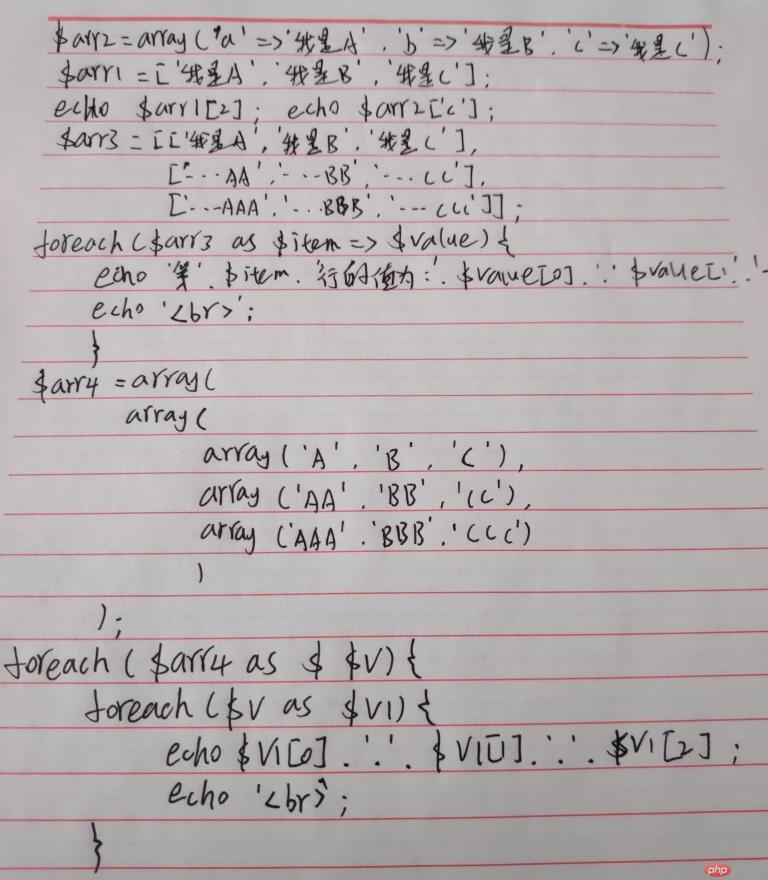 $arr2 = array('a' => '我是A', 'b' => '我是B', 'c' => '我是C');
$arr1 = ['我是A', '我是B', '我是C'];
echo $arr1[2]; echo $arr2['c'];
$arr3 = [['我是A', '我是B', '我是C'],
['...AA', '...BB', '...CC'],
['...AAA', '...BBB', '...CCC']];
foreach ($arr3 as $item => $value) {
echo '第'.$item.'行的值为:'.$value[0].','.$value[1].'
echo '<br>';
}
$arr4 = array(
array(
array('A', 'B', 'C'),
array('AA', 'BB', 'CC'),
array('AAA', 'BBB', 'CCC')
)
);
foreach ($arr4 as $ $V) {
foreach ($V as $V1) {
echo $V1[0].','.$V1[1].','.$V1[2];
echo '<br>';
}
php